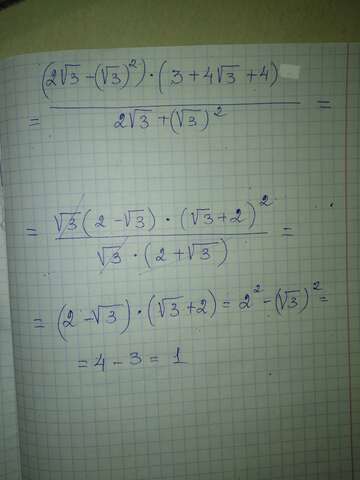 = \frac{(2√3 - (√3)^2) · (3 + 4√3 + 4)}{2√3 + (√3)^2} =
= \frac{√3(2 - √3) · (√3 + 2)^2}{√3 · (2 + √3)} =
= (2 - √3) · (√3 + 2) = 2^2 - (√3)^2 =
= 4 - 3 = 1